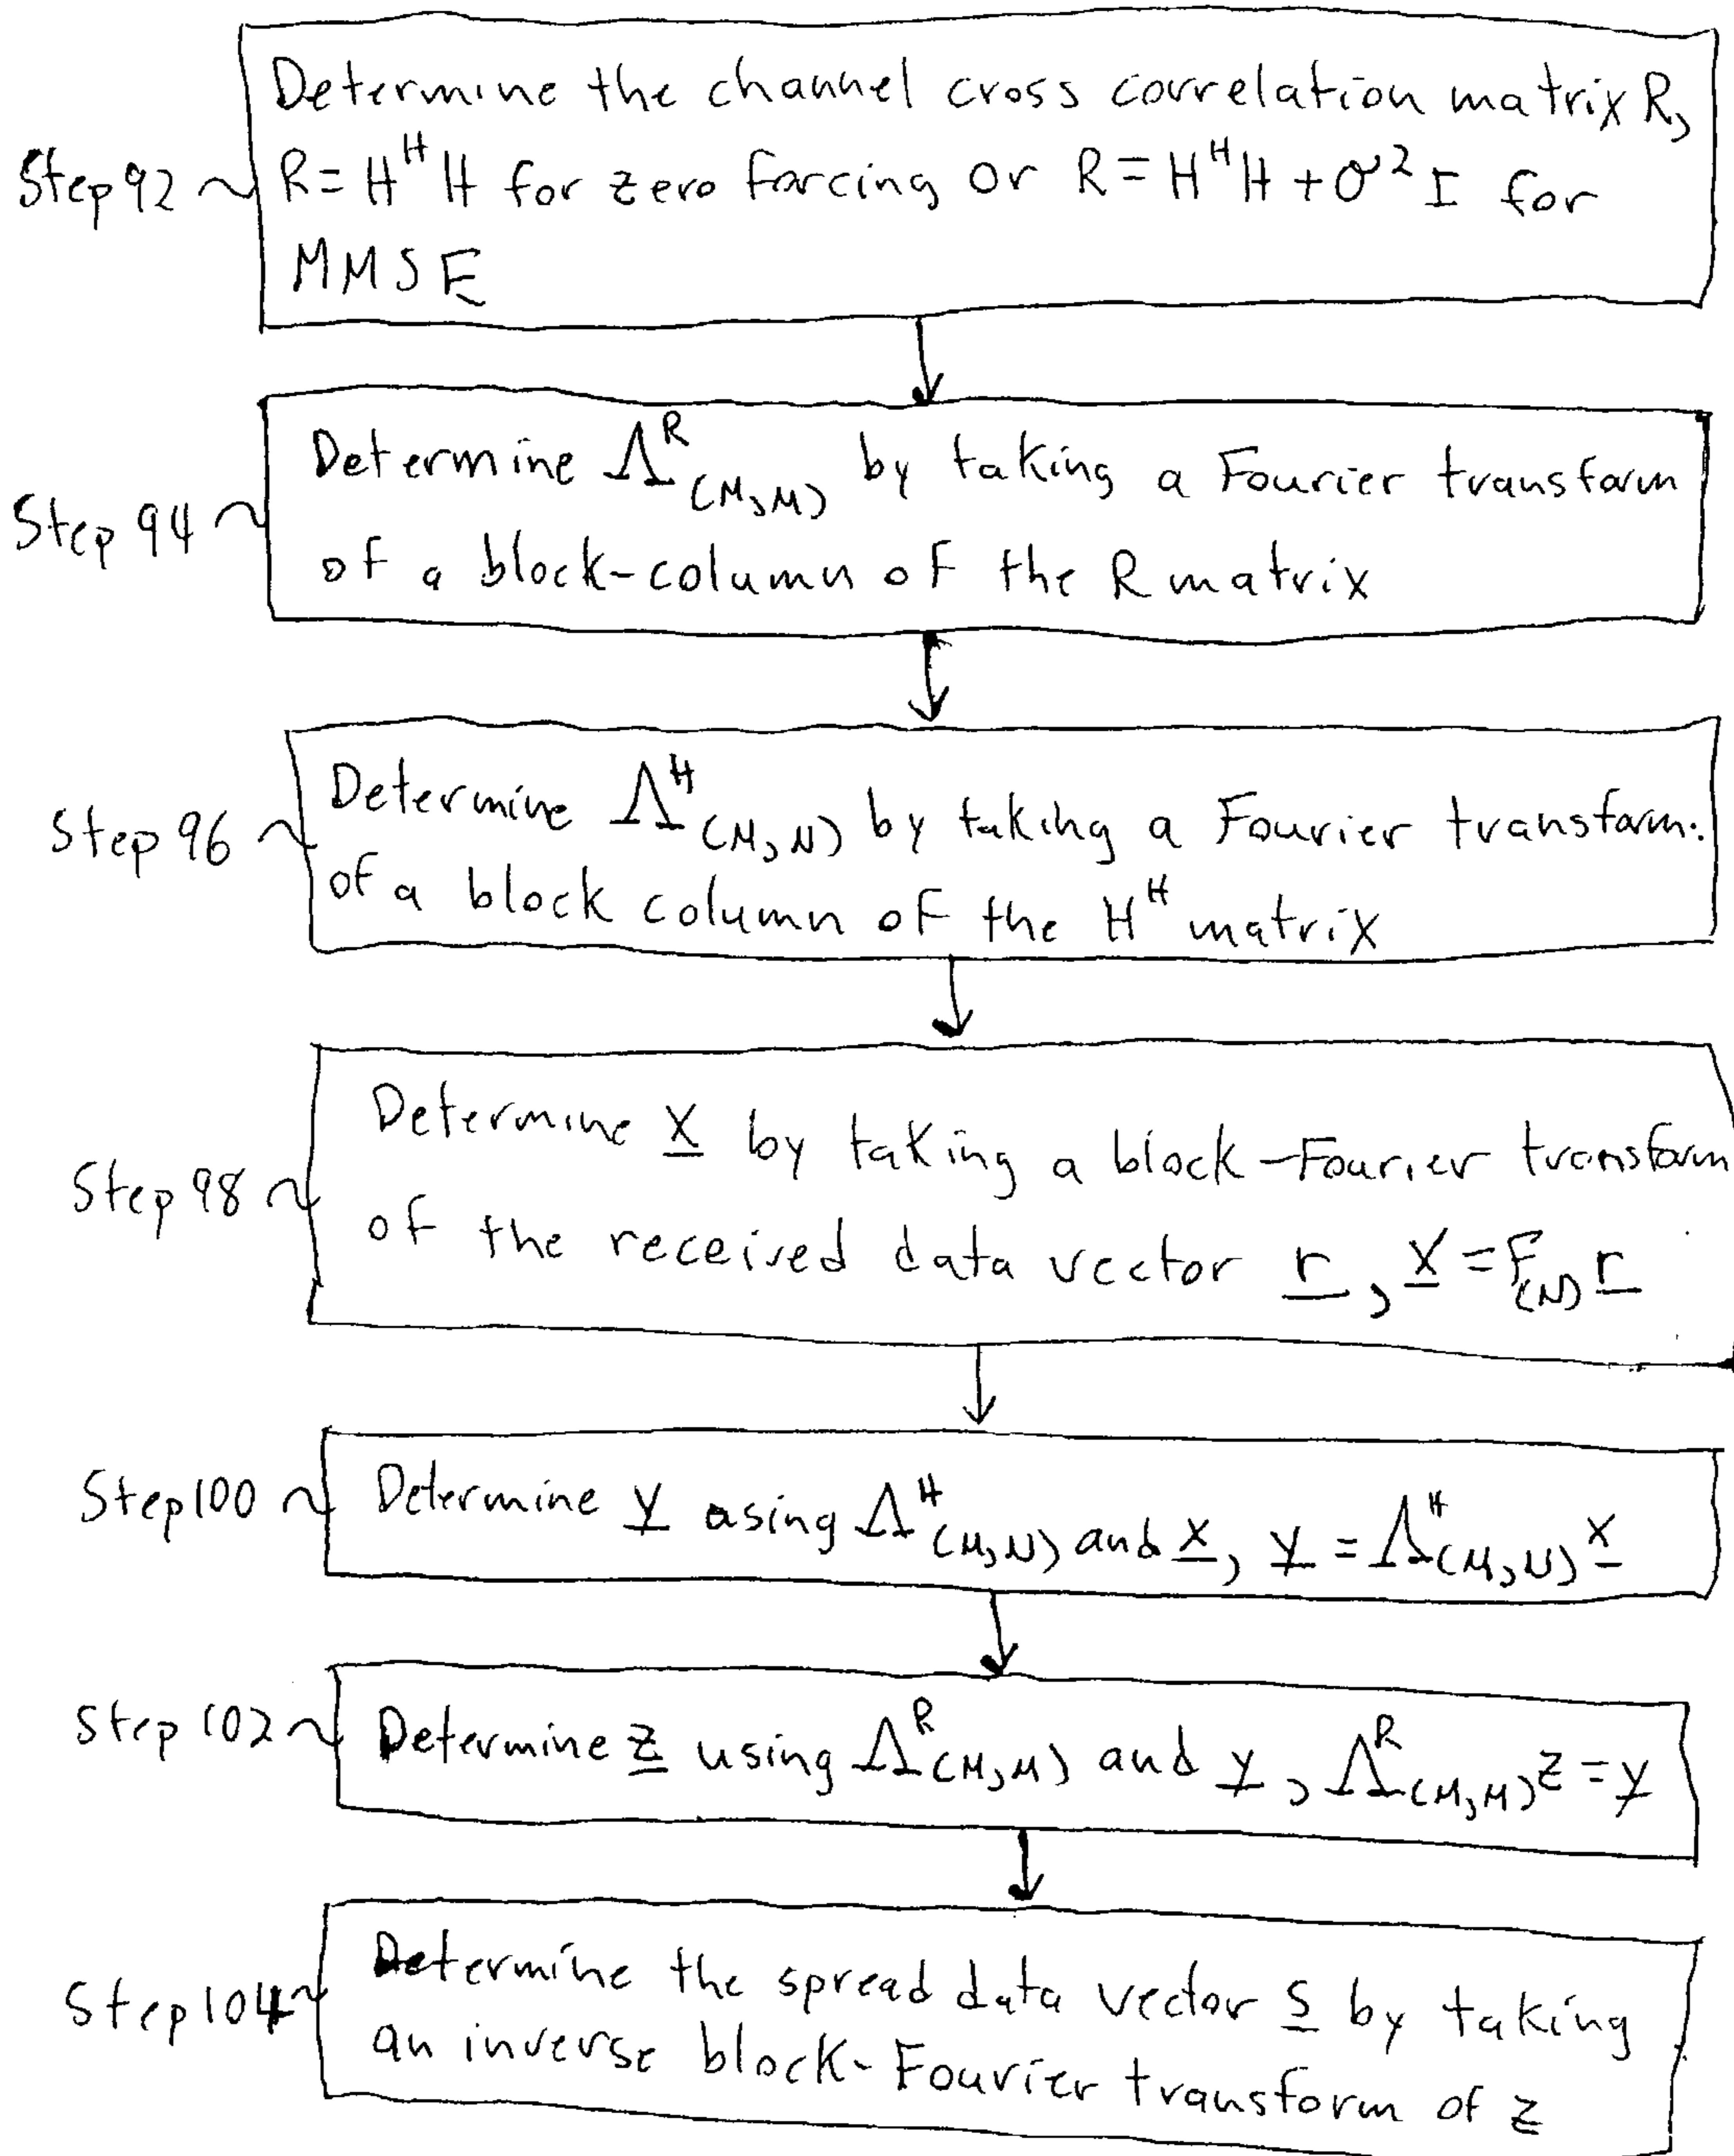 Determine the channel cross correlation matrix R,
Step 92 R = H^H H for zero forcing or R = H^H H + σ² I for
MMSE
Determine Λ^R_(M,M) by taking a Fourier transform
Step 94
of a block-column of the R matrix
Determine Λ^H_(M,N) by taking a Fourier transform.
Step 96
of a block column of the H^H matrix
Determine x by taking a block-Fourier transform
Step 98
of the received data vector r, x = F_(N) r
Step 100 Determine y using Λ^H_(M,N) and x, y = Λ^H_(M,N) x
Step 102 Determine z using Λ^R_(M,M) and y, Λ^R_(M,M) z = y
Determine the spread data vector s by taking
Step 104
an inverse block-Fourier transform of z